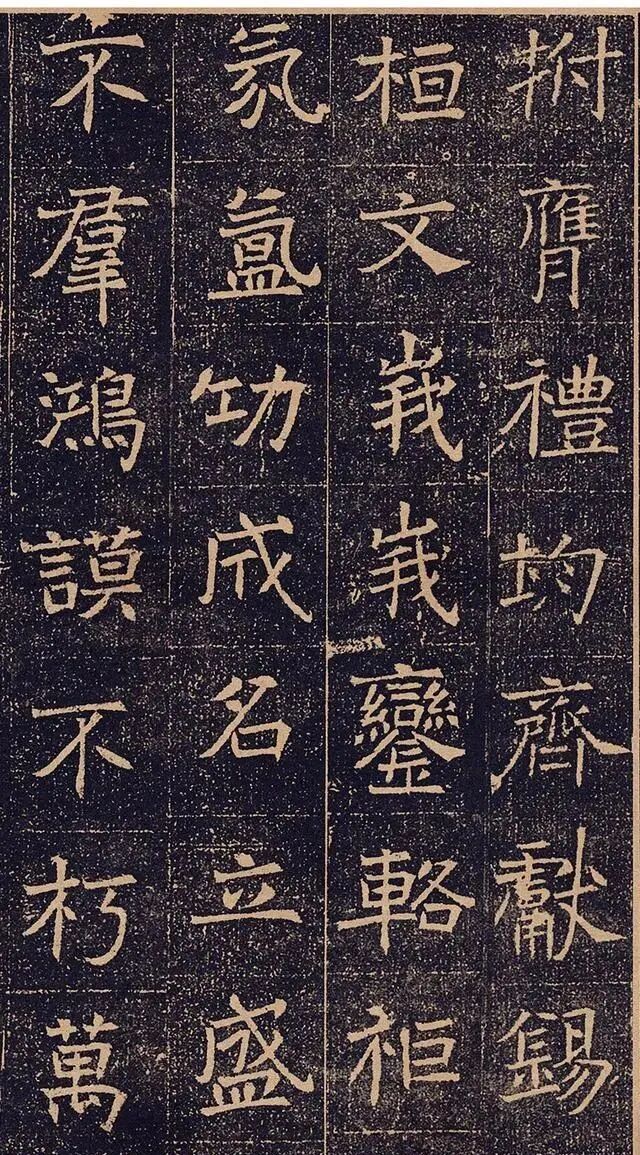 拊膺禮均齊獻錫
桓文峩峩鑾輅秬
氛氲功成名立盛
不羣鴻謨不朽萬